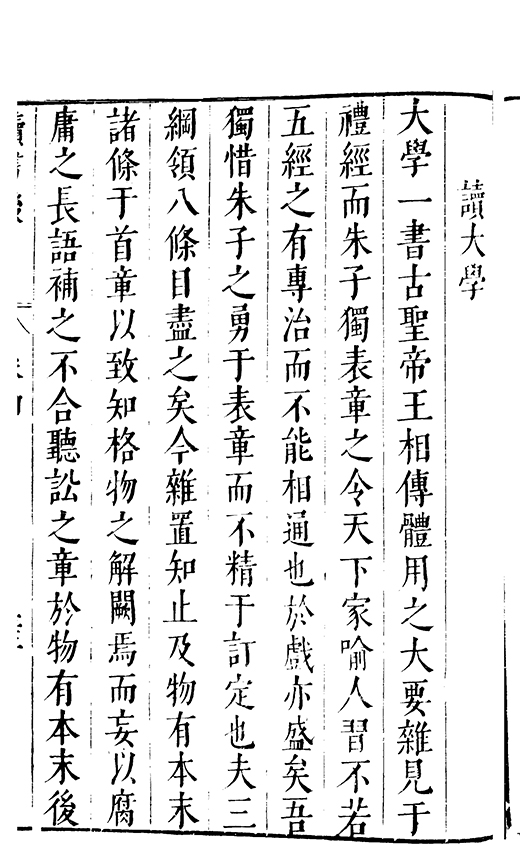 讀大學
大學一書古聖帝王相傳體用之大要雜見于
禮經而朱子獨表章之令天下家喻人習不若
五經之有專治而不能相通也於戲亦盛矣吾
獨惜朱子之勇于表章而不精于訂定也夫三
綱領八條目盡之矣今雜置知止及物有本末
諸條于首章以致知格物之解闕焉而妄以腐
庸之長語補之不合聽訟之章於物有本末後
讀書後